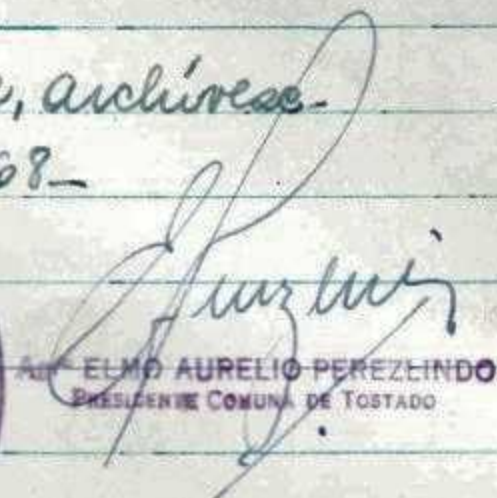 , archívese-
68-
ELMO AURELIO PEREZLINDO
PRESIDENTE COMUNA DE TOSTADO